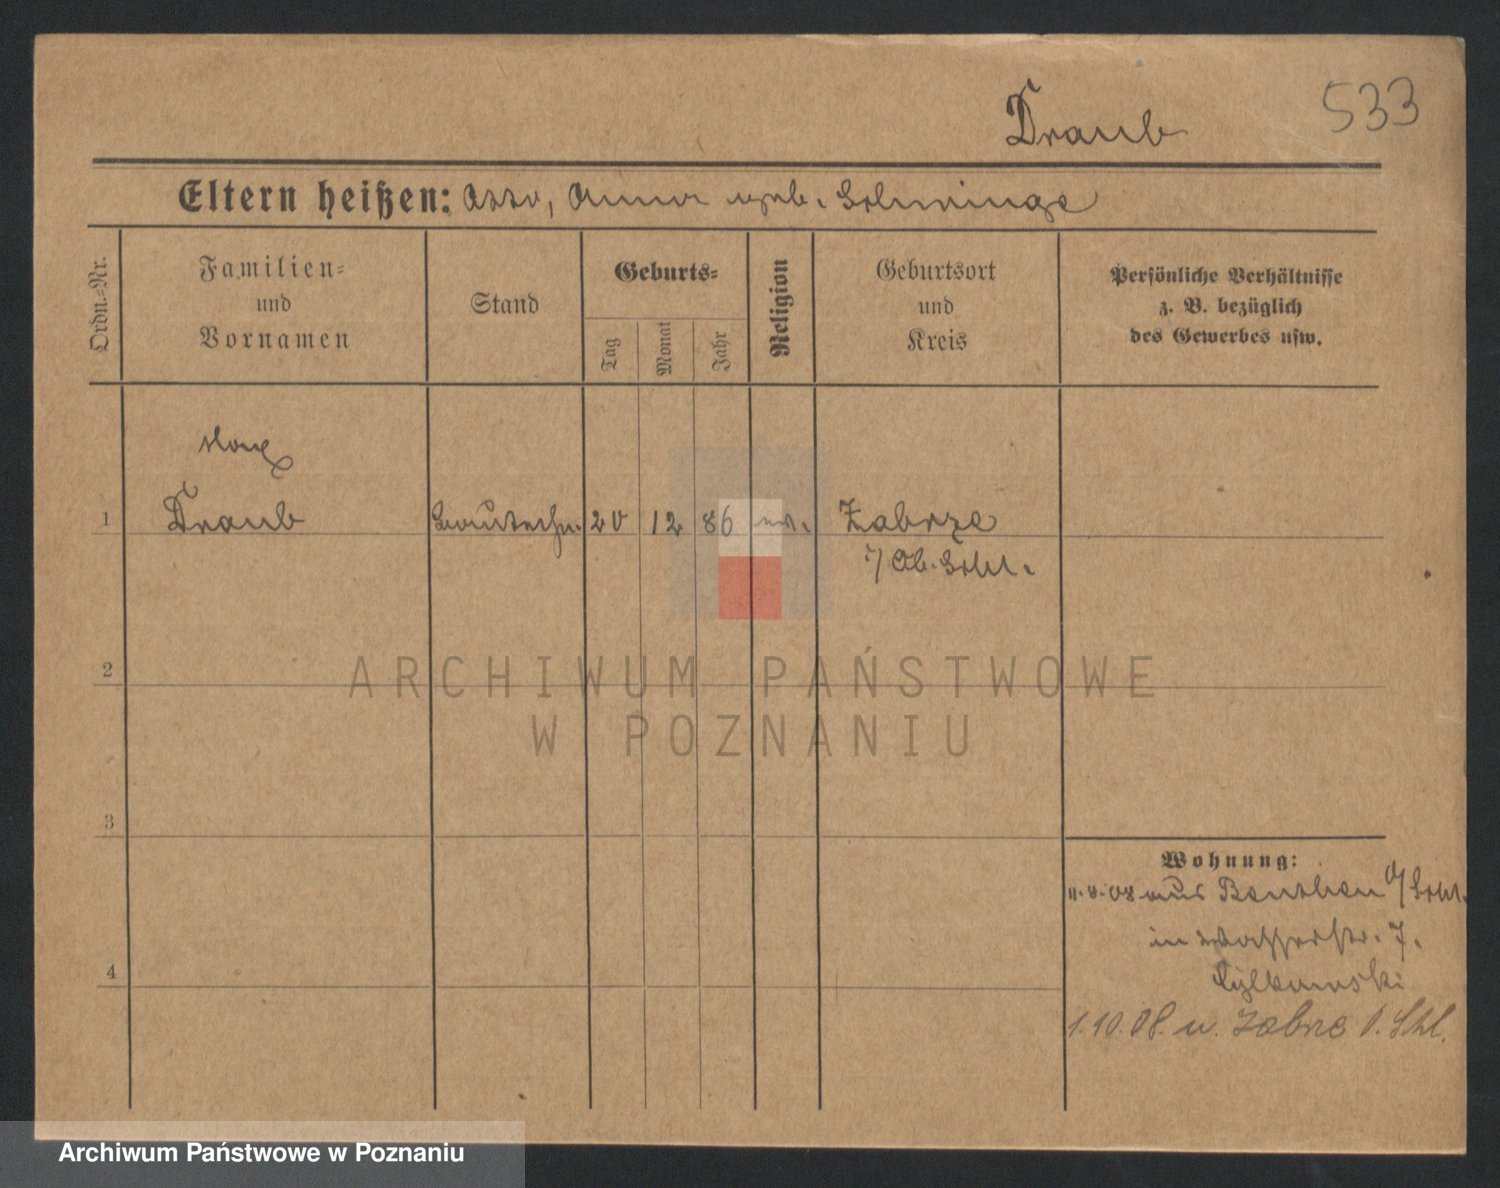 533
Draub
Eltern heißen: Otto, Anna geb. Schwinge
Ordn.-Nr.
Familien-
und
Vornamen
Stand
Geburts-
Tag
Monat
Jahr
Religion
Geburtsort
und
Kreis
Persönliche Verhältnisse
z. B. bezüglich
des Gewerbes usw.
Max
1 Draub Bautechn. 20 12 86 ev. Zabrze
i/ Ob. Schl.
2
3
4
Wohnung:
11.8.08 aus Beuthen O/Schl.
in Wasserstr. 7.
1.10.08. n. Zabrze O. Schl.
ARCHIWUM PAŃSTWOWE
W POZNANIU
Archiwum Państwowe w Poznaniu